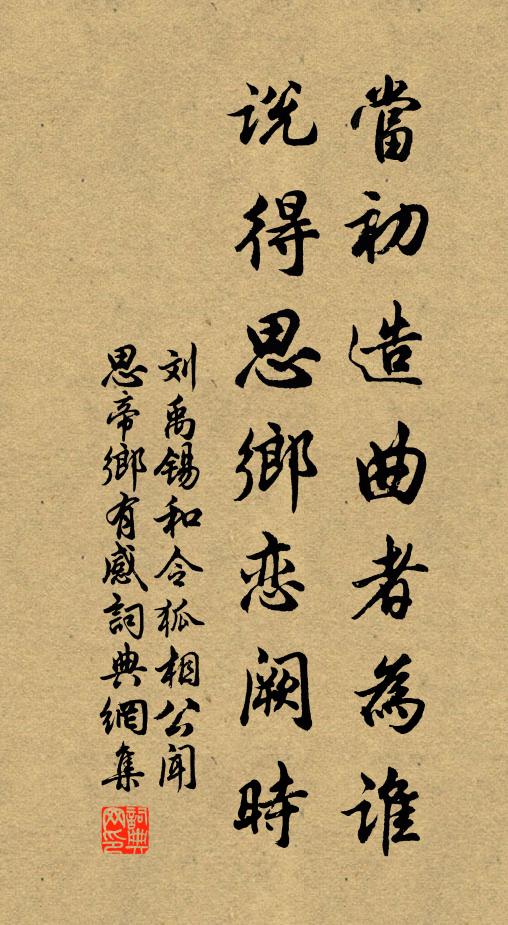 當初造曲者為誰
说得思鄉恋阙時
刘禹锡和令狐相公闻
思帝鄉有感詞典網集
詞典网印